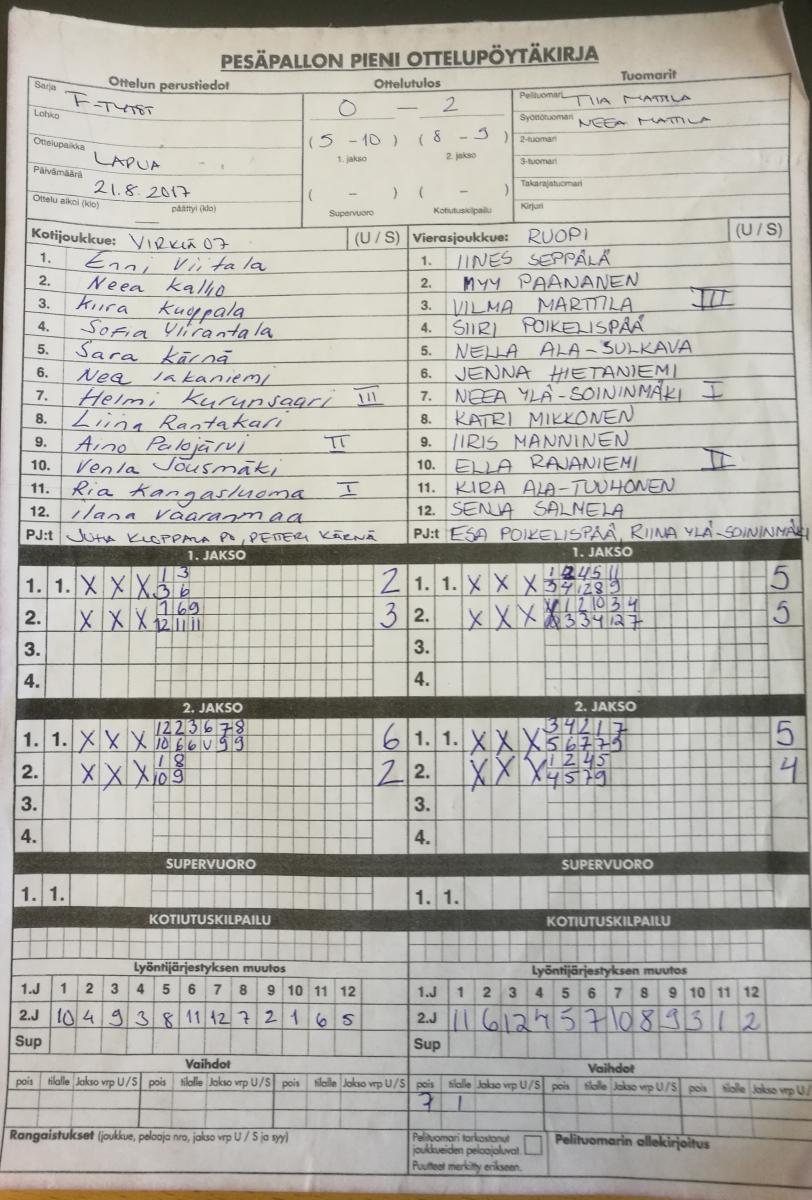 PESÄPALLON PIENI OTTELUPÖYTÄKIRJA
Ottelun perustiedot Ottelutulos Tuomarit
Sarja F-TYTÖT
Lohko
Ottelupaikka LAPUA
Päivämäärä 21.8.2017
Ottelu alkoi (klo) päättyi (klo)
0 – 2
(5 – 10) (8 – 9)
1. jakso 2. jakso
( – ) ( – )
Supervuoro Kotiutuskilpailu
Pelituomari TIIA MATTILA
Syöttötuomari NEEA MATTILA
2-tuomari
3-tuomari
Takarajatuomari
Kirjuri
Kotijoukkue: VIRKIÄ 07 (U / S)
1. Enni Viitala
2. Neea Kallio
3. Kiira Kuoppala
4. Sofia Ylirantala
5. Sara Kärnä
6. Nea Takaniemi
7. Helmi Kurunsaari III
8. Liina Rantakari
9. Aino Palojärvi II
10. Venla Jousmäki
11. Ria Kangasluoma I
12. Ilana Vaaranmaa
PJ:t JUHA KUOPPALA PJ, PETTERI KÄRNÄ
Vierasjoukkue: RUOPI (U / S)
1. IINES SEPPÄLÄ
2. MYY PAANANEN
3. VILMA MARTTILA III
4. SIIRI POIKELISPÄÄ
5. NELLA ALA-SULKAVA
6. JENNA HIETANIEMI
7. NEEA YLÄ-SOININMÄKI I
8. KATRI MIKKONEN
9. IIRIS MANNINEN
10. ELLA RAJANIEMI II
11. KIRA ALA-TUUHONEN
12. SENJA SALMELA
PJ:t ESA POIKELISPÄÄ, RIINA YLÄ-SOININMÄKI
1. JAKSO
1. 1. X X X 1 3 2
3 6
2. X X X 7 6 9 3
12 11 11
3.
4.
1. JAKSO
1. 1. X X X 1 2 4 5 11 5
3 4 12 8 9
2. X X X 1 2 10 3 4 5
3 3 4 12 7
3.
4.
2. JAKSO
1. 1. X X X 12 2 3 6 7 8 6
10 6 6 9 9
2. X X X 1 8 2
10 9
3.
4.
2. JAKSO
1. 1. X X X 3 4 2 1 7 5
5 6 7 7 9
2. X X X 1 2 4 5 4
4 5 7 9
3.
4.
SUPERVUORO SUPERVUORO
1. 1. 1. 1.
KOTIUTUSKILPAILU KOTIUTUSKILPAILU
Lyöntijärjestyksen muutos
1.J 1 2 3 4 5 6 7 8 9 10 11 12
2.J 10 4 9 3 8 11 12 7 2 1 6 5
Sup
Lyöntijärjestyksen muutos
1.J 1 2 3 4 5 6 7 8 9 10 11 12
2.J 11 6 12 4 5 7 10 8 9 3 1 2
Sup
Vaihdot
pois tilalle Jakso vrp U/S pois tilalle Jakso vrp U/S pois tilalle Jakso vrp U/S
Vaihdot
pois tilalle Jakso vrp U/S pois tilalle Jakso vrp U/S pois tilalle Jakso vrp U/
7 1
Rangaistukset (joukkue, pelaaja nro, jakso vrp U / S ja syy)
Pelituomari tarkastanut
joukkueiden pelaajaluvat.
Puutteet merkitty erikseen.
Pelituomarin allekirjoitus